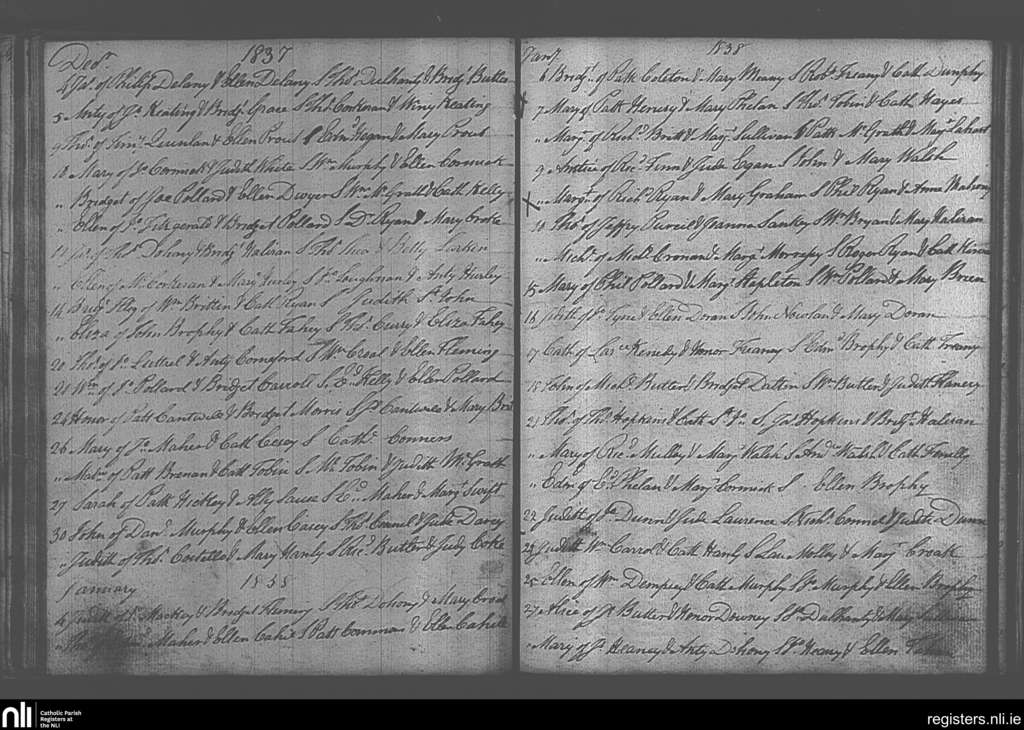 Decr. 1837
4 Jas. of Philip Delany & Ellen Delany S Thos. Delhanty & Bridgt. Butler
5 Anty of Js. Keating & Bridgt. Grace S Thos. Corkeran & Winy Keating
9 Thos. of Jims. Quinlan & Ellen Prout S Edmd. Hogan & Mary Prout
10 Mary of Js. Cormick & Judith White S Wm. Murphy & Ellen Cormick
" Bridget of Joe Pollard & Ellen Dwyer S Wm. McGrath & Cath. Kelly
" Ellen of Js. Fitzgerald & Bridget Pollard S Ds. Ryan & Mary Croke
11 of Thos. Dohony & Bridgt. Haleran S Thos. Shea & Betty Larken
" Ellen of M. Corkeran & Mary Hurley S Js. Loughman & Anty Hurley
14 Bridgt. of Wm. Britten & Cath Ryan S Judith St. John
" Eliza of John Brophy & Cath Fahey S Thos. Curry & Eliza Fahey
20 Thos. of Js. Luttrel & Anty Comeford S Wm. Creal & Ellen Fleming
21 Wm. of Js. Pollard & Bridget Carroll S Ed. Kelly & Ellen Pollard
24 Honor of Patt Cantwell & Bridget Morris S Js. Cantwell & Mary
26 Mary of Js. Maher & Cath Casey S Cath. Conners
" of Patt Brenan & Catt Tobin S Ml. Tobin & Judith McGrath
27 Sarah of Patk Hickey & Ally S Ed. Maher & Margt. Swift
30 John of Danl. Murphy & Ellen Casey S Thos. & Jude Davey
" Judith of Thos. Costello & Mary Hanly S Ricd. Butler & Judy Coke
January 1838
4 Judith of Js. Mackey & Bridget S Thos. Dohony & Mary
" Maher & Ellen Cahil S Patt Commons & Ellen Cahill
Jany. 1838
6 Bridgt. of Patk & Mary Meany S Robt. Freany & Cath Dunphy
7 Mary of Patk Henery & Mary Phelan S Thos. Tobin & Cath Hayes
" Margt. of Richd. Britt & Margt. Sullivan S Patk McGrath & Margt.
9 of Ricd. Finn & Jude Egan S John & Mary Walsh
" Margt. of Richd. Ryan & Mary Graham S Phil Ryan & Anne Mahony
10 Thos. of Jeffry Purcil & Joanna Sankey S Wm. Bryan & Mary Haleran
" Michl. of Michl. Cronan & Margt. Morrisey S Roger Ryan & Cath
15 Mary of Phil Pollard & Margt. Stapleton S Wm. Pollard & Mary Breen
16 of Js. Tyne & Ellen Doran S John Nowlan & Mary Doran
17 Cath of Kenedy & Honor Freaney S Edmd. Brophy & Cath Freany
18 John of Michl. Butler & Bridget Dalton S Wm. Butler & Judith Flanery
21 Thos. of Thos. Hopkins & Cath S Js. Hopkins & Bridgt. Haleran
" Mary of Ricd. Mulley & Margt. Walsh S & Cath Fenelly
" Edmd. of Ed. Phelan & Margt. Cormick S Ellen Brophy
22 Judith of Js. Dunn & Jude Laurence S Richd. Connel & Judith Dunn
23 Judith Wm. Carrol & Cath Hanly S Lau Molloy & Margt. Croak
25 Ellen of Wm. Dempsey & Cath Murphy S Js. Murphy & Ellen
27 Alice of Js. Butler & Honor Downey S Js. Dalhanty & Mary Sullivan
" Mary of Js. Heaney & Anty Dohony S Js. Heany & Ellen
nli Catholic Parish
Registers at
the NLI
registers.nli.ie